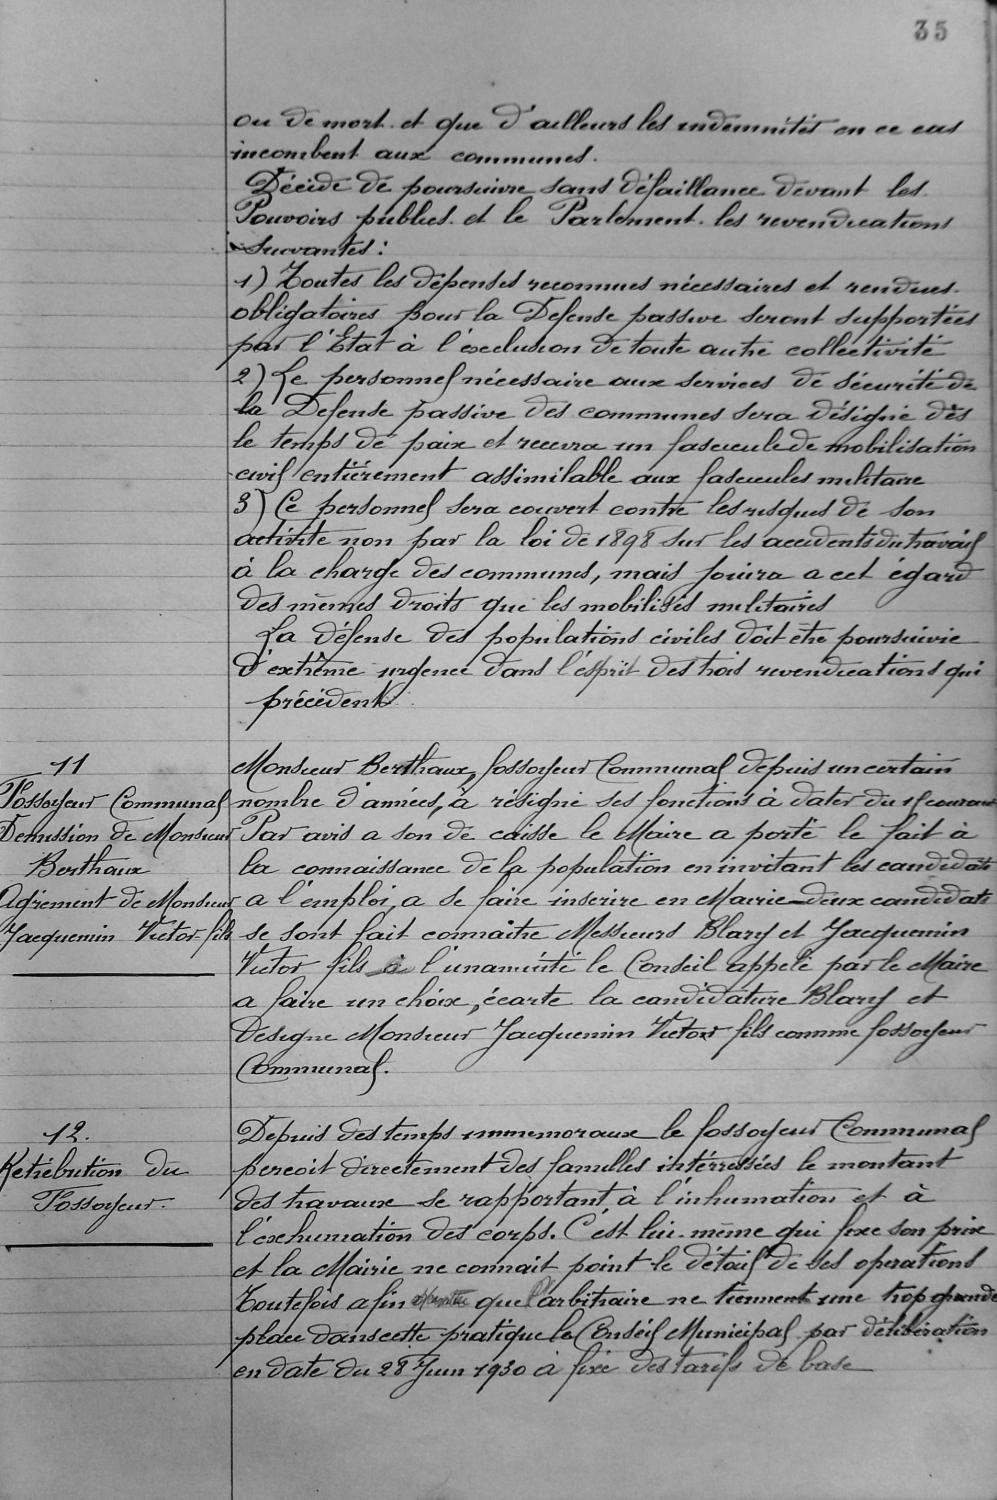 35
ou de mort. et que d'ailleurs les indemnités en ce cas
incombent aux communes.
Décide de poursuivre sans défaillance devant les
Pouvoirs publics. et le Parlement. les revendications
suivantes :
1) Toutes les dépenses reconnues nécessaires et rendues
obligatoires pour la Défense passive seront supportées
par l'État à l'exclusion de toute autre collectivité
2) Le personnel nécessaire aux services de sécurité de
la Défense passive des communes sera désigné dès
le temps de paix et recevra un fascicule de mobilisation
civil entièrement assimilable aux fascicules militaire
3) Ce personnel sera couvert contre les risques de son
activité non par la loi de 1898 sur les accidents du travail
à la charge des communes, mais jouira a cet égard
des mêmes droits que les mobilisés militaires
La défense des populations civiles doit être poursuivie
d'extrême urgence dans l'esprit des trois revendications qui
précédent
11
Fossoyeur Communal
Demission de Monsieur
Berthaux
Agrement de Monsieur
Jacquemin Victor fils
Monsieur Berthaux, fossoyeur Communal depuis un certain
nombre d'années, à résigné ses fonctions à dater du courant
Par avis a son de caisse le Maire a porté le fait à
la connaissance de la population en invitant les candidats
a l'emploi, a se faire inscrire en Mairie_deux candidats
se sont fait connaitre Messieurs Blary et Jacquemin
Victor fils_à l'unanimité le Conseil appelé par le Maire
a faire un choix, écarte la candidature Blary et
designe Monsieur Jacquemin Victor fils comme fossoyeur
Communal.
12.
Retribution du
Fossoyeur.
Depuis des temps immemoraux le fossoyeur Communal
percoit directement des familles intérressées le montant
des travaux se rapportant à l'inhumation et à
l'exhumation des corps. C'est lui-même qui fixe son prix
et la Mairie ne connait point le détail de ses operations
Toutefois afin que l'arbitraire ne tiennent une trop grande
place dans cette pratique le Conseil Municipal par délibération
en date du 28 Juin 1930 à fixé des tarifs de base